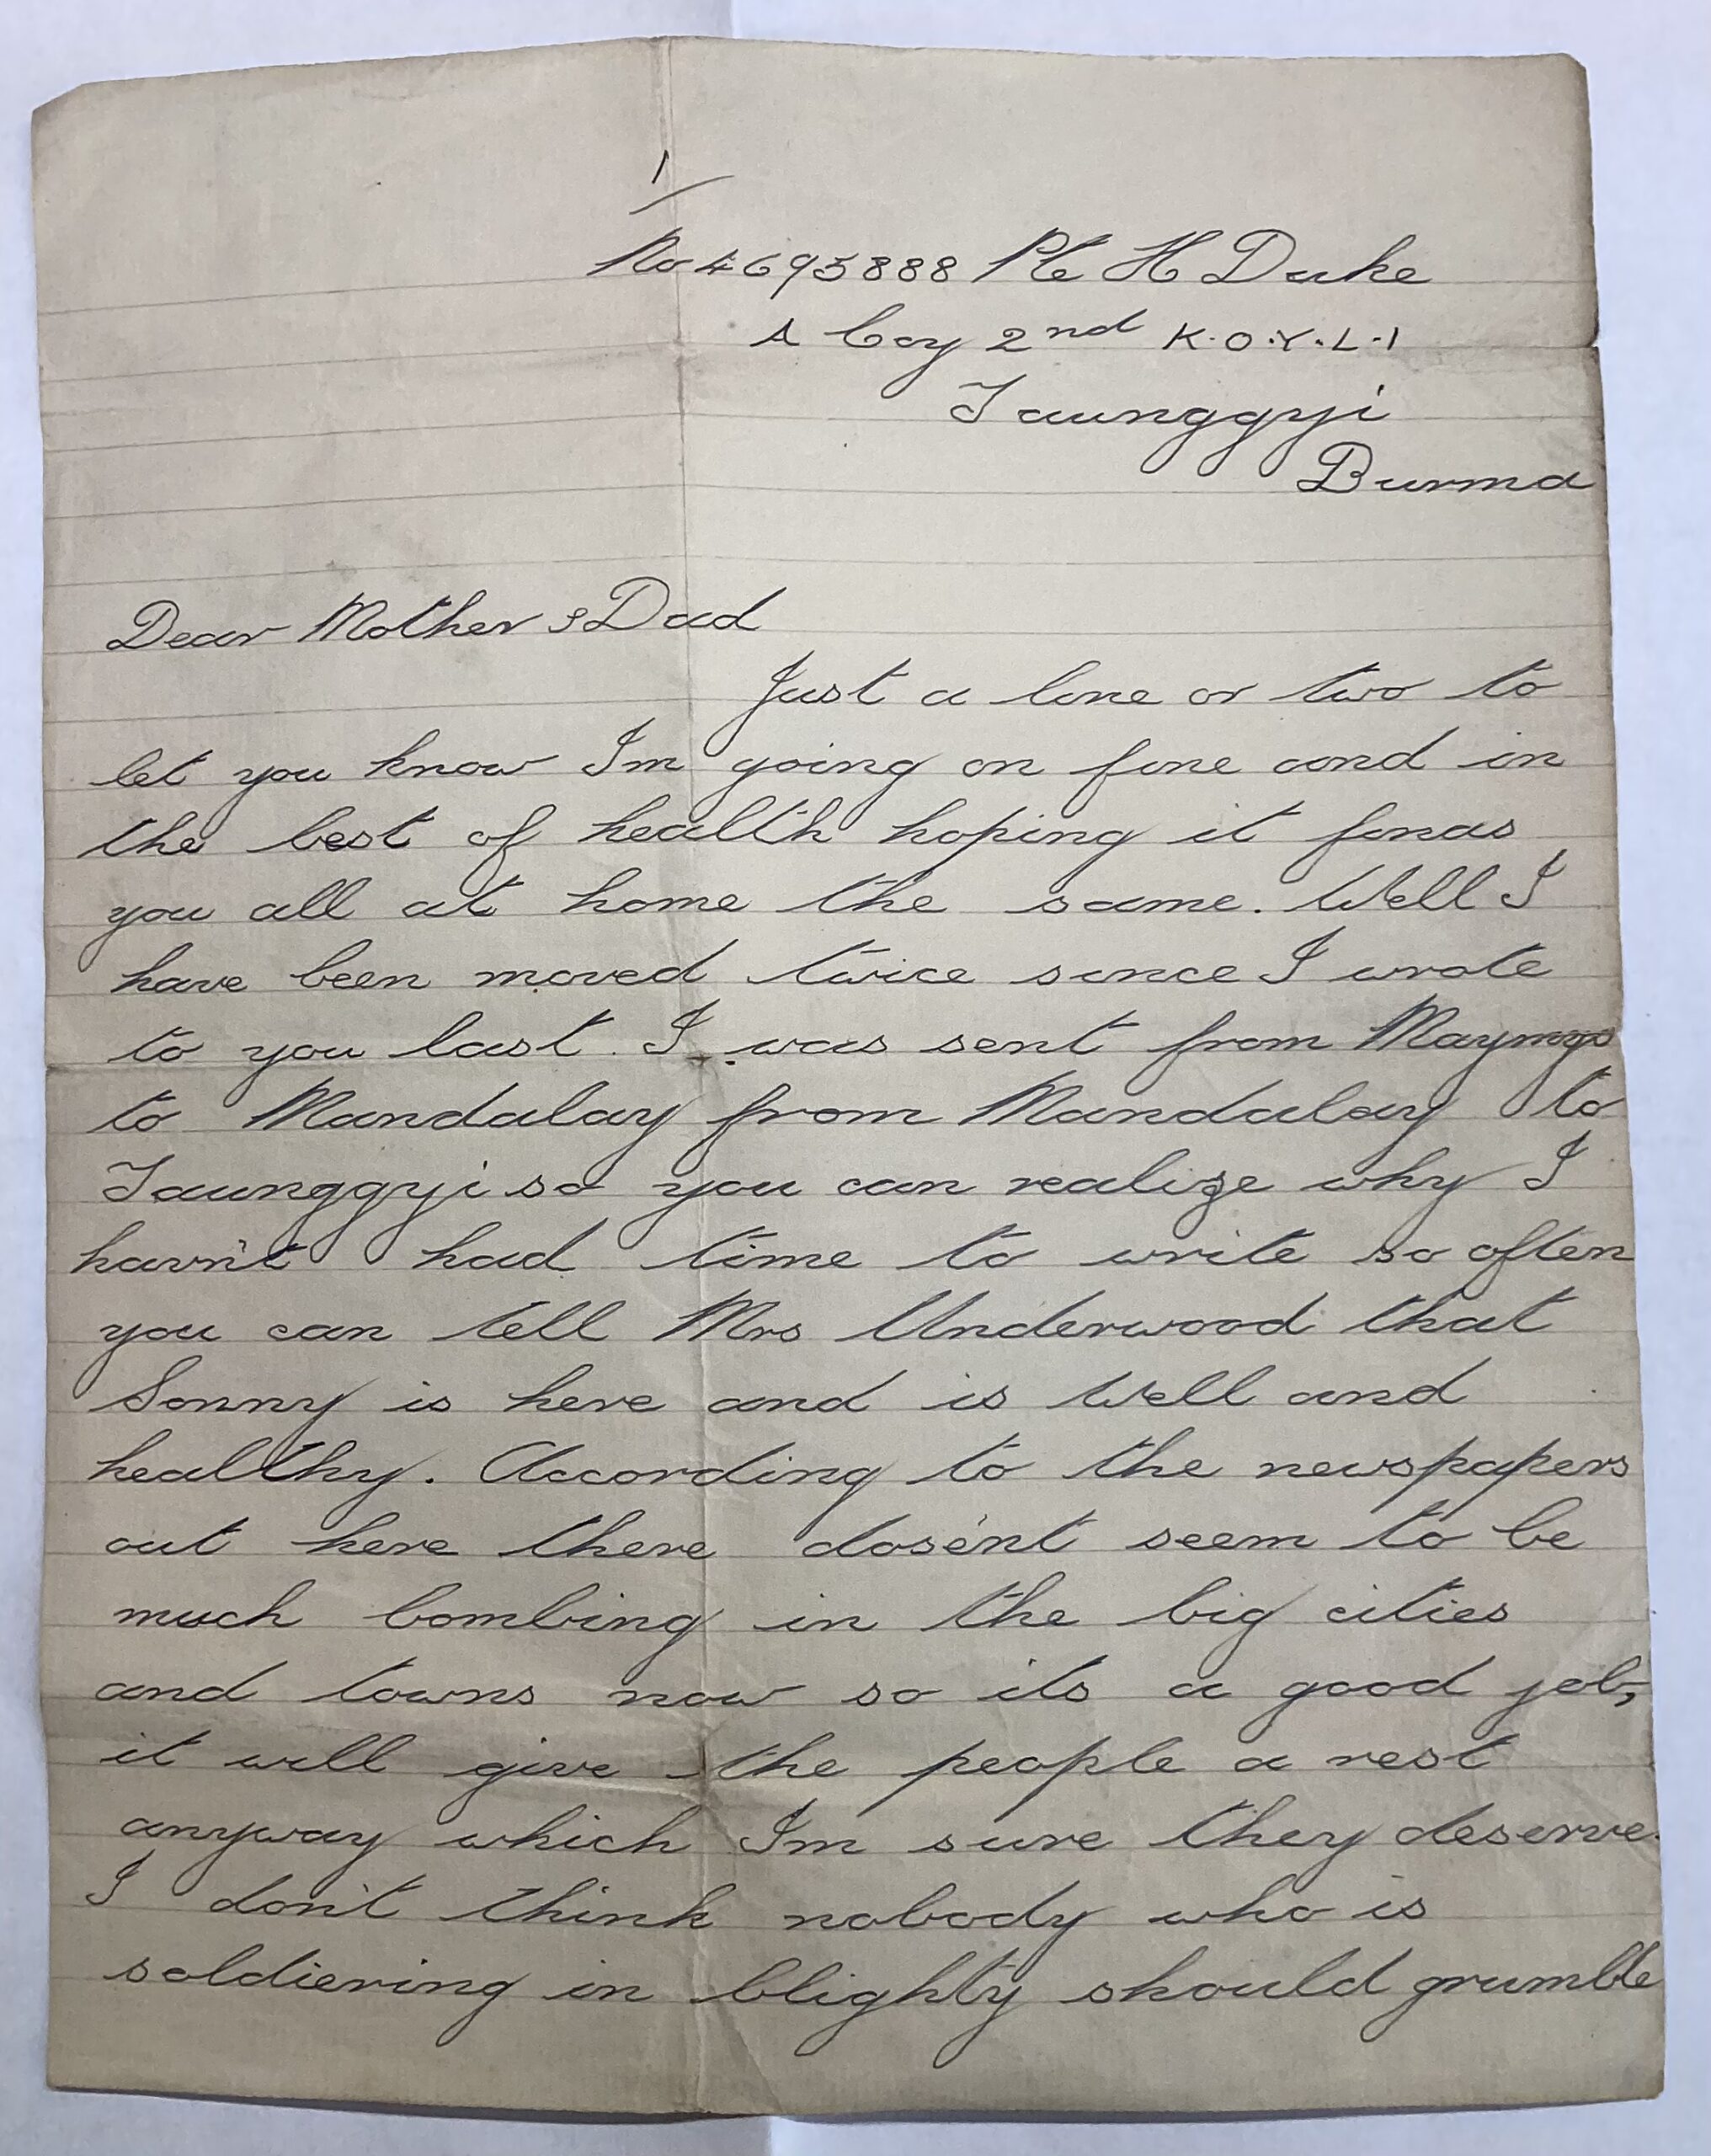 1/
No 4695888 Pte H Duke
A Coy 2nd K.O.Y.L.I
Taunggyi
Burma
Dear Mother & Dad
Just a line or two to
let you know Im going on fine and in
the best of health hoping it finds
you all at home the same. Well I
have been moved twice since I wrote
to you last. I was sent from Maymyo
to Mandalay from Mandalay to
Taunggyi so you can realize why I
havn't had time to write so often
you can tell Mrs Underwood that
Sonny is here and is Well and
healthy. According to the newspapers
out here there dose'nt seem to be
much bombing in the big cities
and towns now so its a good job,
it will give the people a rest
anyway which Im sure they deserve.
I don't think nobody who is
soldiering in blighty should grumble